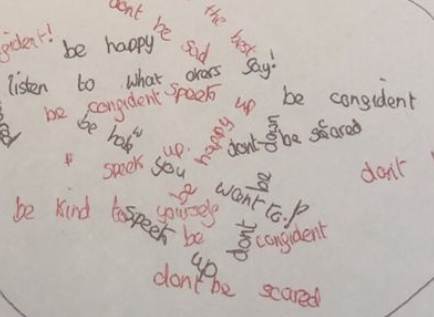 dont be sad
the best
gident!
be happy
listen to what okers say!
be congident
speek up
be congident
be how
you
want to.!
happy
down
dont be scared
speek up.
dont
be kind to yourselg
be
speek up
dont be
be congident
dont be scared